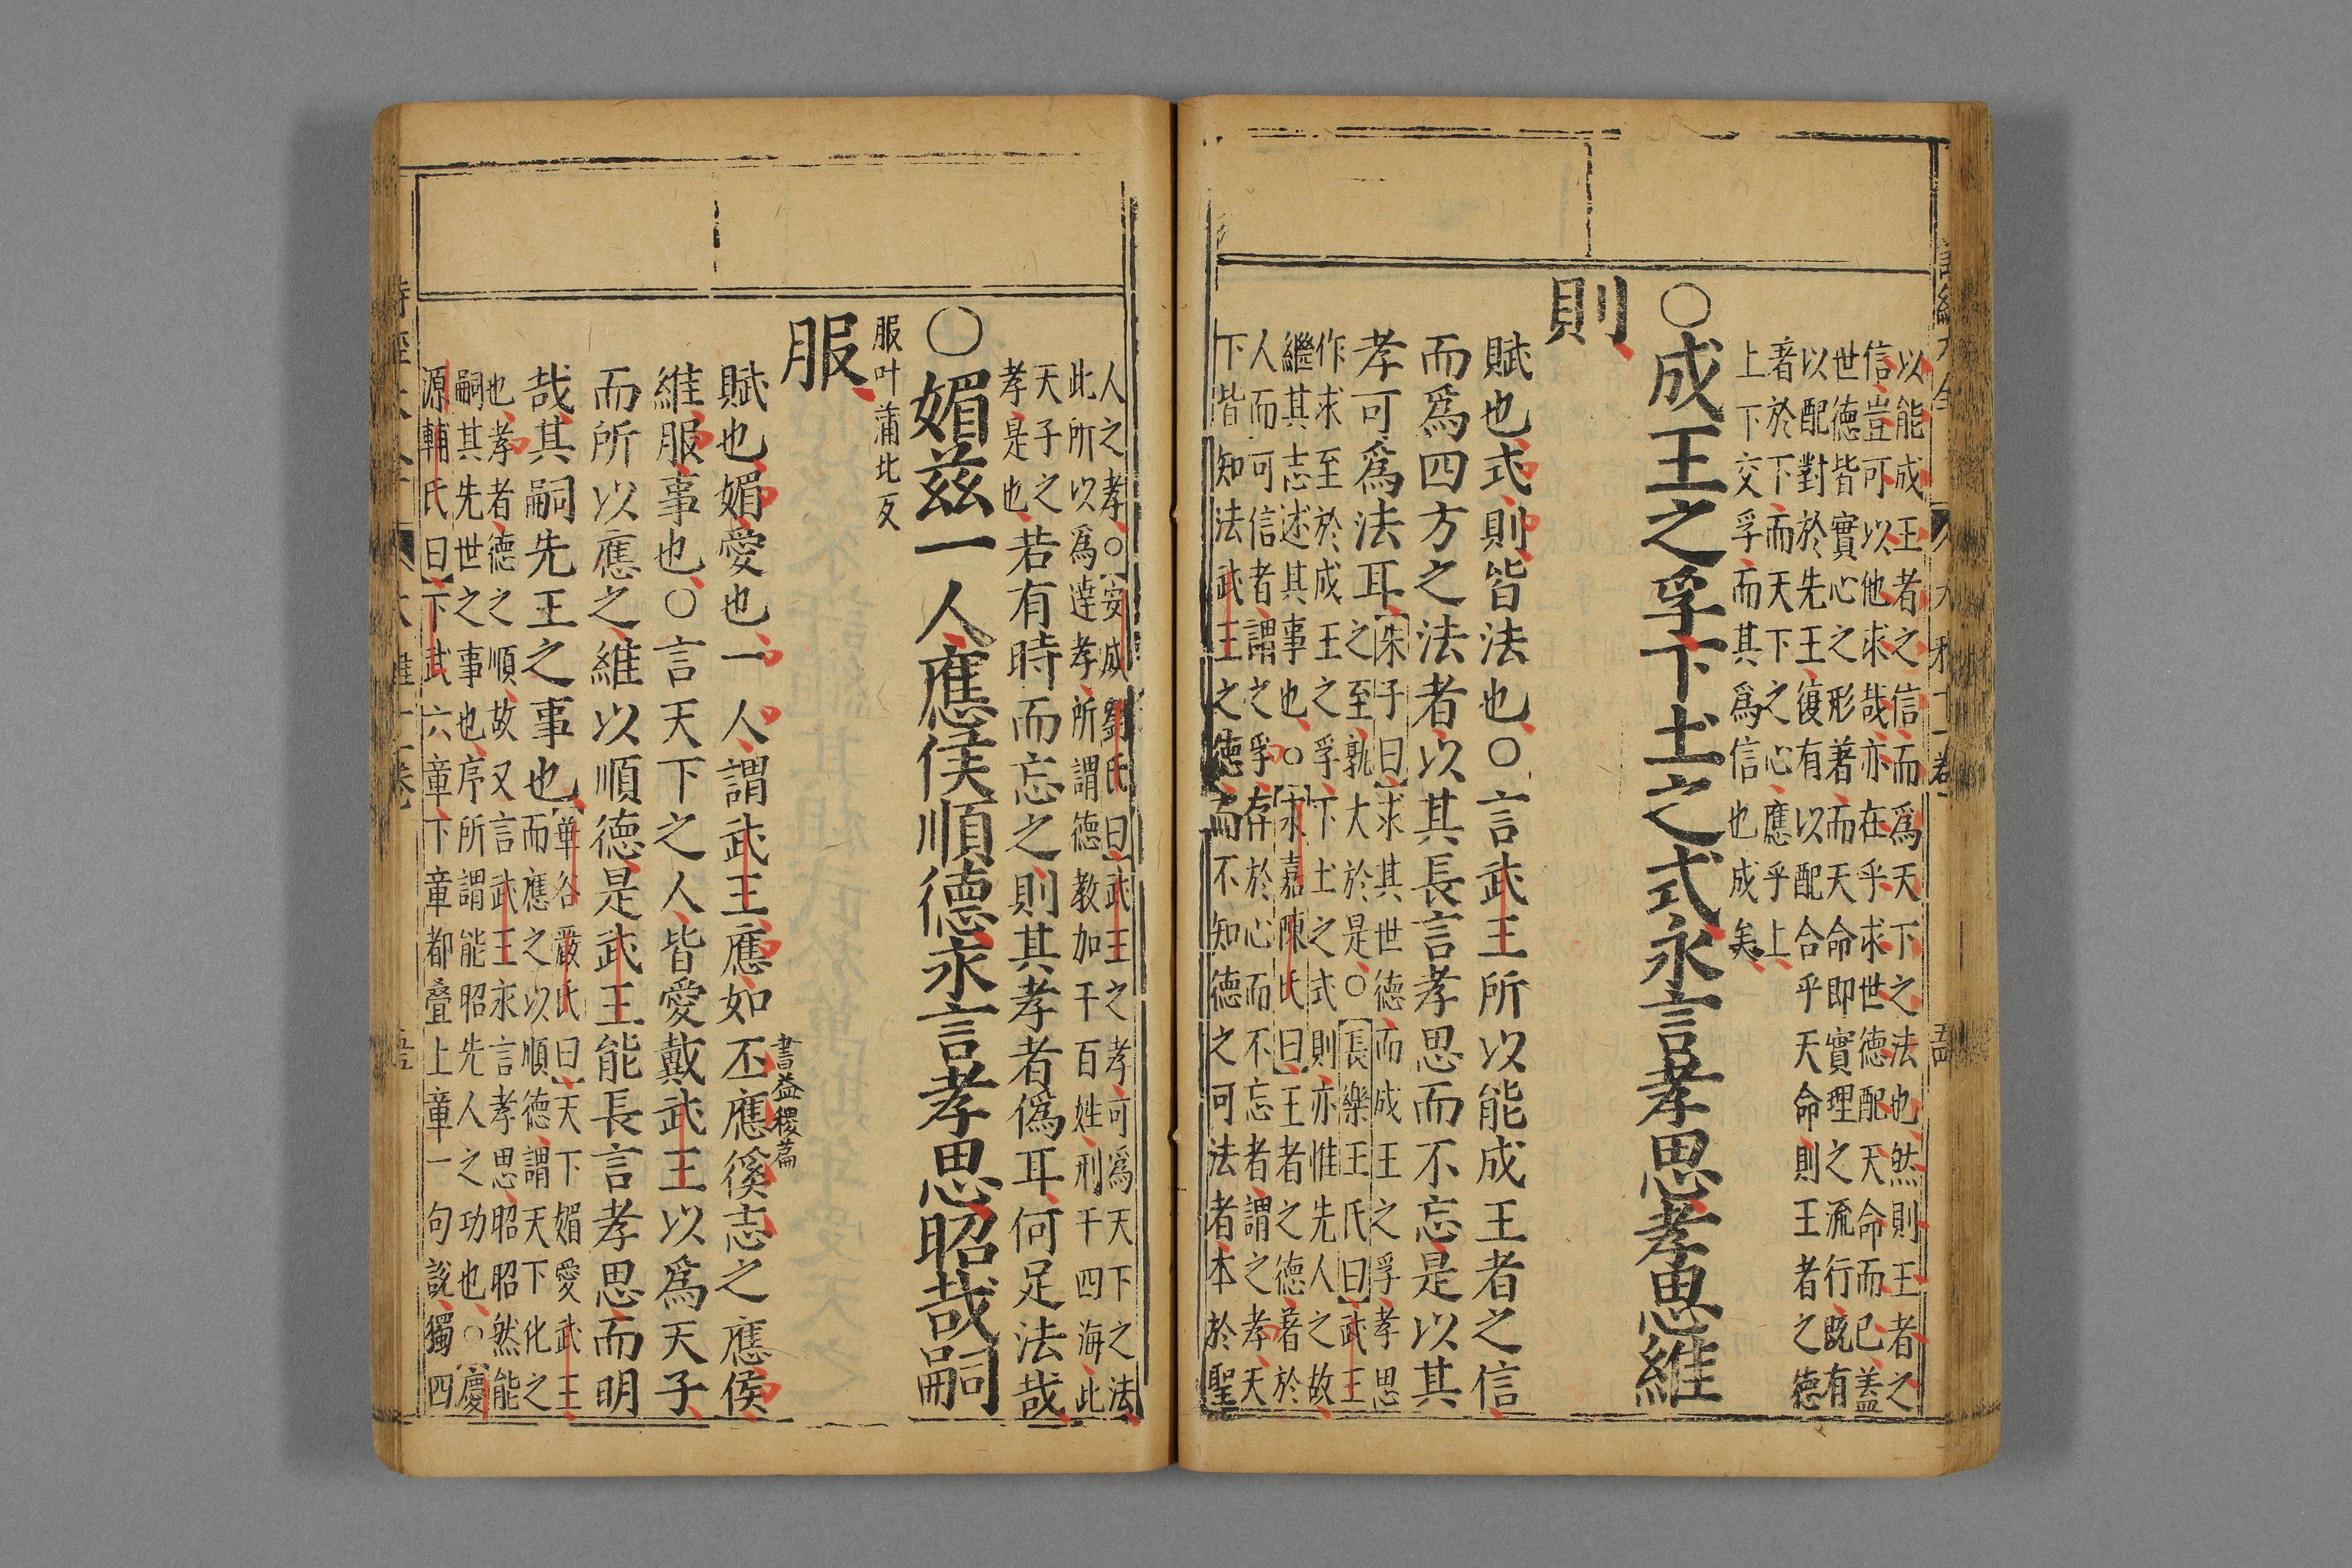 以能成王者之信而爲天下之法也然則王者之
信豈可以他求哉亦在乎求世德配天命而已盖
世德皆實心之形著而天命即實理之流行既有
以配對於先王復有以配合乎天命則王者之德
著於下而天下之心應乎上
上下交孚而其爲信也成矣
○成王之孚下土之式永言孝思孝思維
則
賦也式則皆法也○言武王所以能成王者之信
而爲四方之法者以其長言孝思而不忘是以其
孝可爲法耳
朱子曰求其世德而成王之孚孝思
之至孰大於是○長樂王氏曰武王
作求至於成王之孚下土之式則亦惟先人之故
繼其志述其事也○永嘉陳氏曰王者之德著於
人而可信者謂之孚存於心而不忘者謂之孝天
下皆知法武王之德而不知德之可法者本於聖
人之孝○安成劉氏曰武王之孝可爲天下之法
此所以爲達孝所謂德教加于百姓刑于四海此
天子之
孝是也
若有時而忘之則其孝者僞耳何足法哉
○媚茲一人應侯順德永言孝思昭哉嗣
服叶蒲北反
服
賦也媚愛也一人謂武王應如丕應徯志之應侯
書益稷篇
維服事也○言天下之人皆愛戴武王以爲天子
而所以應之維以順德是武王能長言孝思而明
哉其嗣先王之事也
華谷嚴氏曰天下媚愛武王
而應之以順德謂天下化之
也孝者德之順故又言武王永言孝思昭昭然能
嗣其先世之事也序所謂能昭先人之功也○慶
源輔氏曰下武六章下章都疊上章一句說獨四